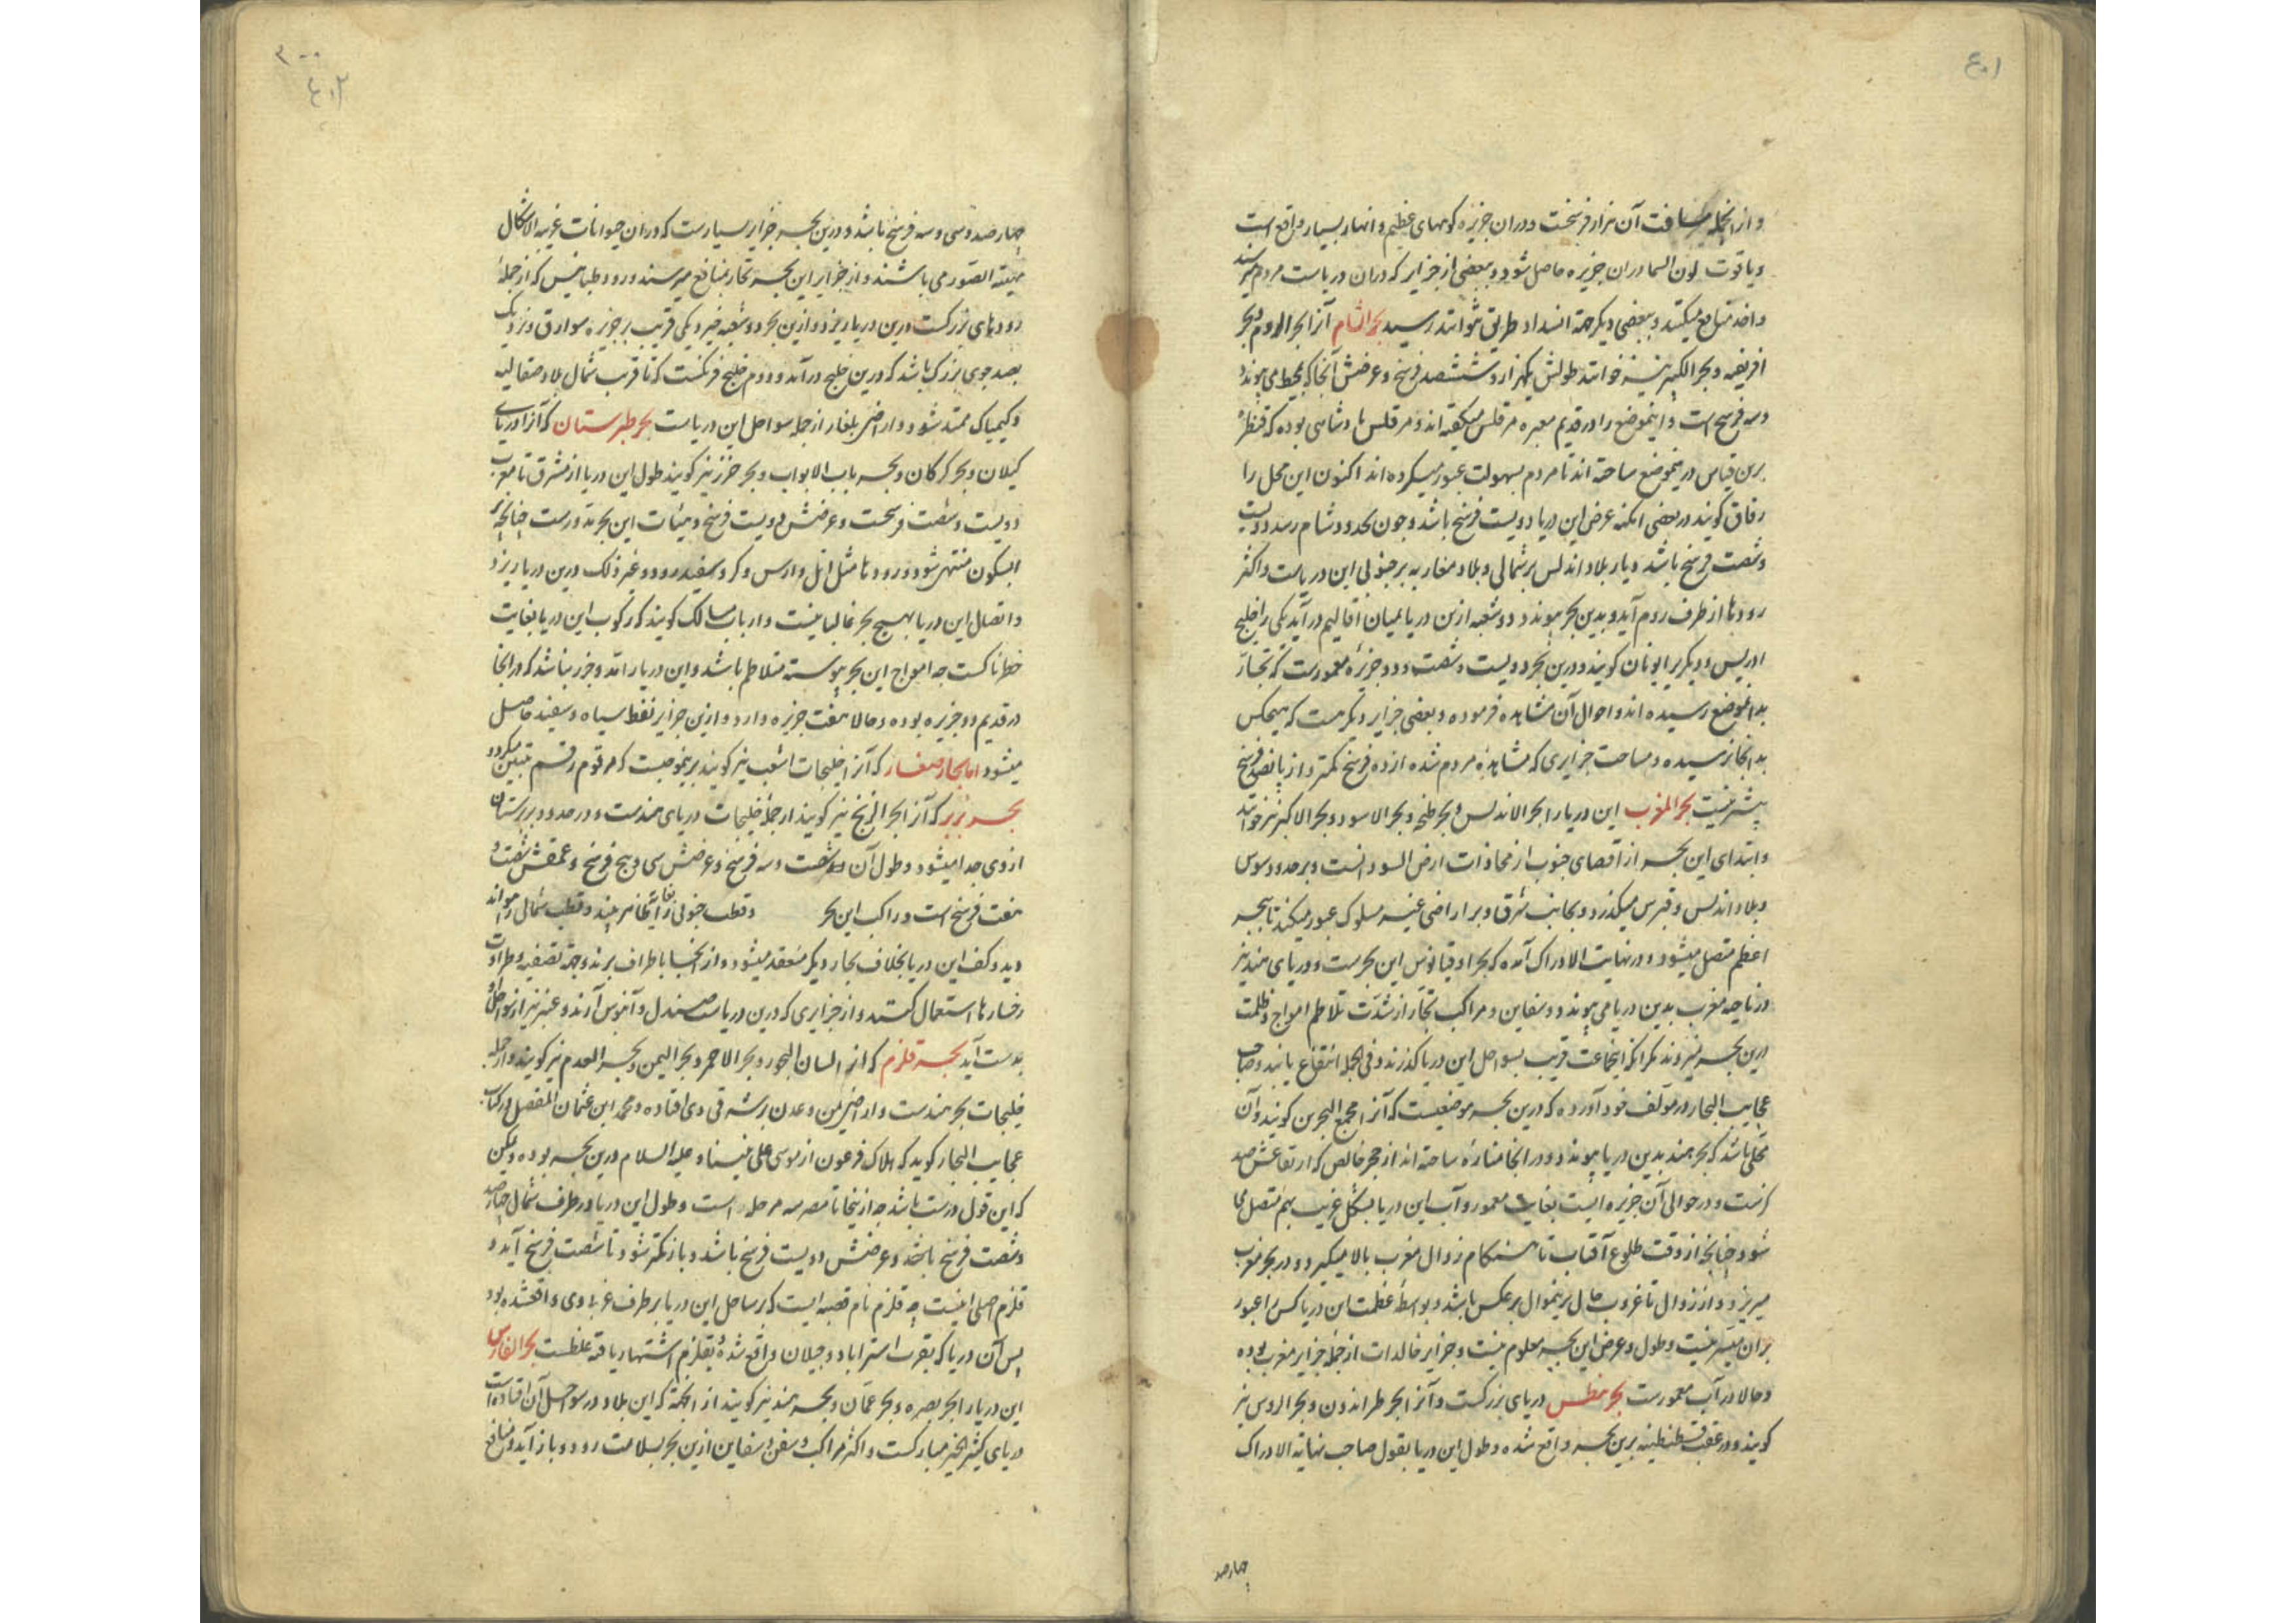 ۴۰۱
و از انجمله مسافت آن هزار فرسخست و دران جزیره کوههای عظیم و انهار بسیار واقع است
و یاقوت لون السما دران جزیره حاصل شود و بعضی از جزایر که دران دریاست مردم میرسند
و اخذ منافع میکنند و بعضی دیگر جهة انسداد طریق نتوانند رسید بحر الشام آنرا بحر الروم و بحر
افریقیه و بحر الکبیر نیز خوانند طولش یکهزار و ششصد فرسخ و عرضش آنجا که بمحیط می پیوندد
سه فرسخ است و اینموضع را در قدیم معبره مرقلس میگفته اند و مرقلس پادشاهی بوده که قنطرهٔ
برین قیاس درینموضع ساخته اند تا مردم بسهولت عبور میکرده اند اکنون این محل را
زقاق گویند در بعضی امکنه عرض این دریا دویست فرسخ باشد و چون بحدود شام رسد دویست
و شصت فرسخ باشد و یار بلاد اندلس بر شمالی و بلاد مغاربه بر جنوبی این دریاست و اکثر
رودها از طرف روم آید و بدین بحر پیوندد دو شعبه ازین دریا بمیان اقالیم در آید یکی را خلیج
ادریس و دیگر یرا یونان گویند و درین بحر دویست و شصت و دو جزیرهٔ معمورست که تجار
بدانموضع رسیده اند و احوال آن مشاهده فرموده و بعضی جزایر دیگر هست که هیچکس
بدانجا نرسیده و مساحت جزایری که مشاهدهٔ مردم شده از ده فرسخ کمتر و از پانصد فرسخ
بیشتر نیست بحر المغرب این دریا را بحر الاندلس و بحر طنجه و بحر الاسود و بحر الاکبر نیز خوانند
و ابتدای این بحر از اقصای جنوب از محاذات ارض السودانست و بر حدود سوس
و بلاد اندلس و قبرس میگذرد و بجانب شرق و بر اراضی غیر مسلوک عبور میکند تا ببحر
اعظم متصل میشود و در نهایت الادراک آمده که بحر اوقیانوس این بحرست و دریای هند نیز
در ناحیه مغرب بدین دریا می پیوندد و سفاین و مراکب تجار از شدّت تلاطم امواج و ظلمت
درین بحر نیروند مگر آنکه انجماعت قریب بسواحل این دریا گذرند و فی الجمله انتفاع یابند و صاحب
عجایب البحار در مؤلف خود آورده که درین بحر موضعیست که آنرا مجمع البحرین گویند و آن
محلی باشد که بحر هند بدین دریا پیوندد و در انجا منارهٔ ساخته اند از حجر خالص که ارتفاعش صد
گزست و در حوالی آن جزیره ایست بغایت معمور و آب این دریا بشکل غریب بهم متصل می
شود چنانچه از وقت طلوع آفتاب تا هنگام زوال مغرب بالا میگیرد و در بحر مغرب
میریزد و از زوال تا غروب حال برینموال بر عکس باشد و بواسطهٔ عظمت این دریا کس را عبور
بران میسر نیست و طول و عرض این بحر معلوم نیست و جزایر خالدات از جمله جزایر مغرب بوده
و حالا در آب معمورست بحر بنطس دریای بزرگست و آنرا بحر طرابزون و بحر الروس نیز
گویند و در عقب قسطنطینه برین بحر واقع شده و طول این دریا بقول صاحب نهایة الادراک
چهارصد
۴۰۲
چهارصد و سی و سه فرسخ باشد و درین بحر جزایر بسیارست که دران حیوانات غریبة الاشکال
مهیبة الصور می باشند و از جزایر این بحر تجار بمنافع میرسند و رود طنایس که از جملهٔ
رودهای بزرگست درین دریا ریزد و ازین بحر دو شعبه خیزد یکی قریب بجزیره سوارق و نزدیک
بصد جوی بزرگ باشد که درین خلیج در آمد و دوم خلیج فرنگست که تا قریب شمال بلاد صقالبه
و کیمیاک ممتد شود و اراضی بلغار از جمله سواحل این دریاست بحر طبرستان که آنرا دریای
گیلان و بحر گرگان و بحر باب الابواب و بحر خزر نیز گویند طول این دریا از مشرق تا مغرب
دویست و شصت فرسخست و عرضش دویست فرسخ و هیئات این بحر مدورست چنانچه بر
ابسکون منتهی شود و رودها مثل اتل و ارس و کر و سفید رود و غیر ذلک درین دریا ریزد
و اتصال این دریا بهیچ بحر غالبا نیست و ارباب مسالک گویند که رکوب این دریا بغایت
خطرناکست چه امواج این بحر پیوسته متلاطم باشد و این دریا را مد و جزر نباشد که در انجا
در قدیم دو جزیره بوده و حالا هفت جزیره دارد و ازین جزایر نفط سیاه و سفید حاصل
میشود اما بحار صغار که آنرا خلیجات و شعب نیز گویند برینموجبست که مرقوم رقم تبیین میگردد
بحر بربر که آنرا بحر الزنج نیز گویند از جمله خلیجات دریای هندست و در حدود بربرستان
از وی جدا میشود و طول آن صد و شصت و سه فرسخ و عرضش سی و پنج فرسخ و عمقش شصت و
هفت فرسخ است و راکب این بحر و قطب جنوبی را بغایت ظاهر بیند و قطب شمالی را نتواند
دید و کف این دریا بخلاف بحار دیگر منعقد میشود و از انجا باطراف برند و جهة تصفیه و طراوت
رخسارها استعمال کنند و از جزایری که درین دریاست صندل و آبنوس آرند و عنبر نیز از سواحل او
بدست آید بحر قلزم که آنرا لسان البحر و بحر الاحمر و بحر الیمن و بحر العدم نیز گویند و از جمله
خلیجات بحر هندست و اراضی یمن و عدن بر شرقی وی افتاده و محمد ابن عثمان المفصل در کتاب
عجایب البحار گوید که هلاک فرعون از موسی علی نبینا و علیه السلام درین بحر بوده و لیکن
که این قول درست باشد چه از ینجا تا مصر سه مرحله است و طول این دریا در طرف شمال چهارصد
و شصت فرسخ باشد و عرضش دویست فرسخ باشد و باز کمتر شود تا شصت فرسخ آید و
قلزم اصلی اینست چه قلزم نام قصبه ایست که بر ساحل این دریا بر طرف غربی وی واقعشده بود
پس آن دریا که بقرب استراباد و جیلان واقع شده و بقلزم اشتهار یافته غلطست بحر الفارس
این دریا را بحر بصره و بحر عمان و بحر هند نیز گویند از انجهة که این بلاد در سواحل آن افتاده است
دریای کثیر الخیر مبارکست و اکثر مراکب و سفن و سفاین ازین بحر بسلامت رود و باز آید و منافع